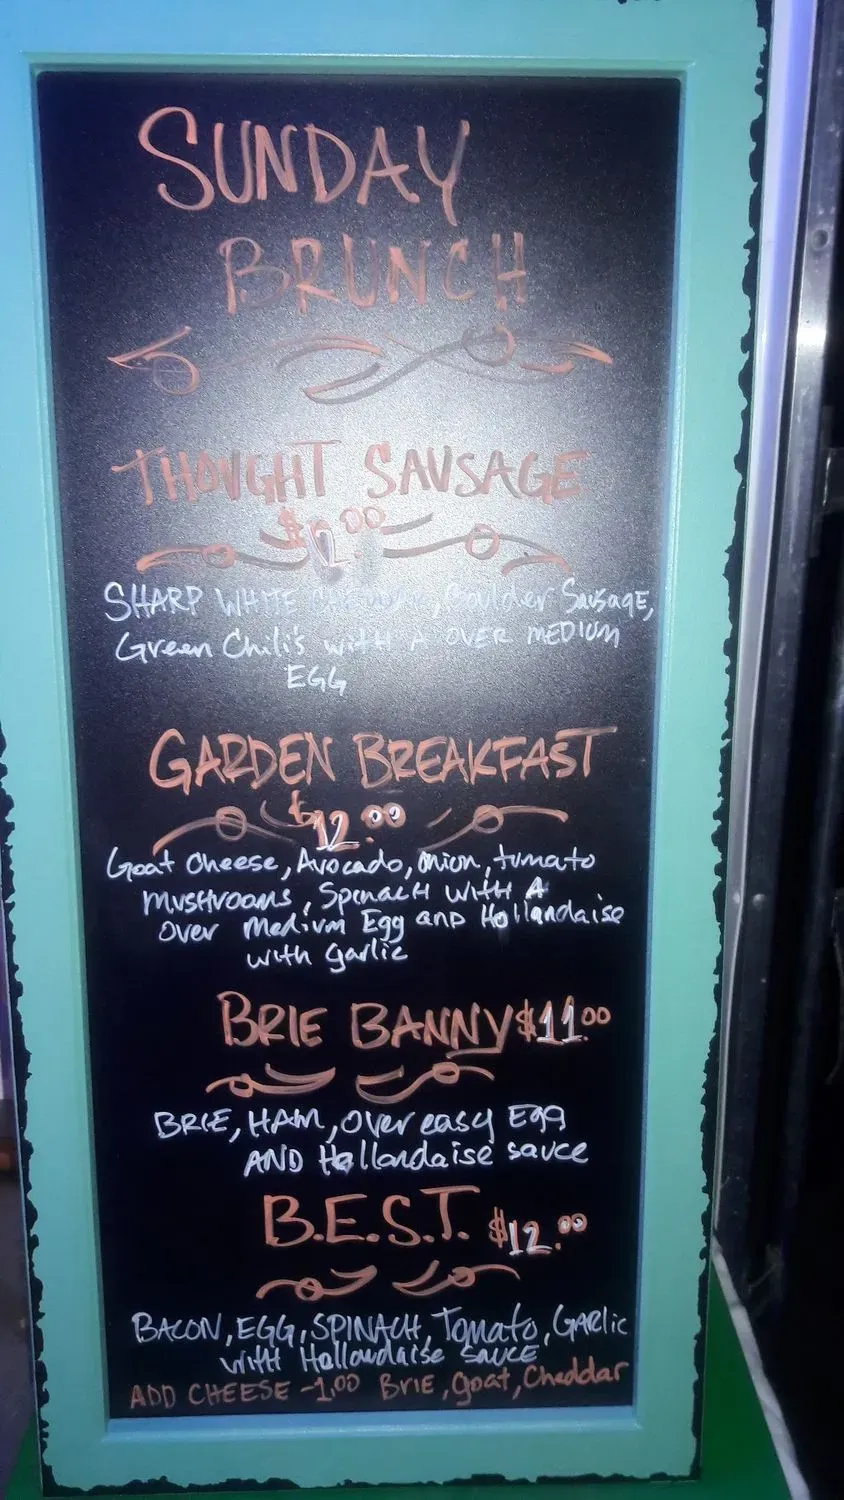 SUNDAY
BRUNCH
THOUGHT SAUSAGE
$12.00
SHARP WHITE CHEDDAR, Boulder Sausage,
Green Chili's with A OVER MEDIUM
EGG
GARDEN BREAKFAST
$12.00
Goat Cheese, Avocado, onion, tomato
MUSHROOMS, Spinach WITH A
OVER Medium Egg AND Hollandaise
with garlic
BRIE BANNY $11.00
BRIE, HAM, over easy Egg
AND Hollandaise sauce
B.E.S.T. $12.00
BACON, EGG, SPINACH, Tomato, GARLIC
WITH Hollandaise SAUCE
ADD CHEESE -1.00 Brie, Goat, Cheddar